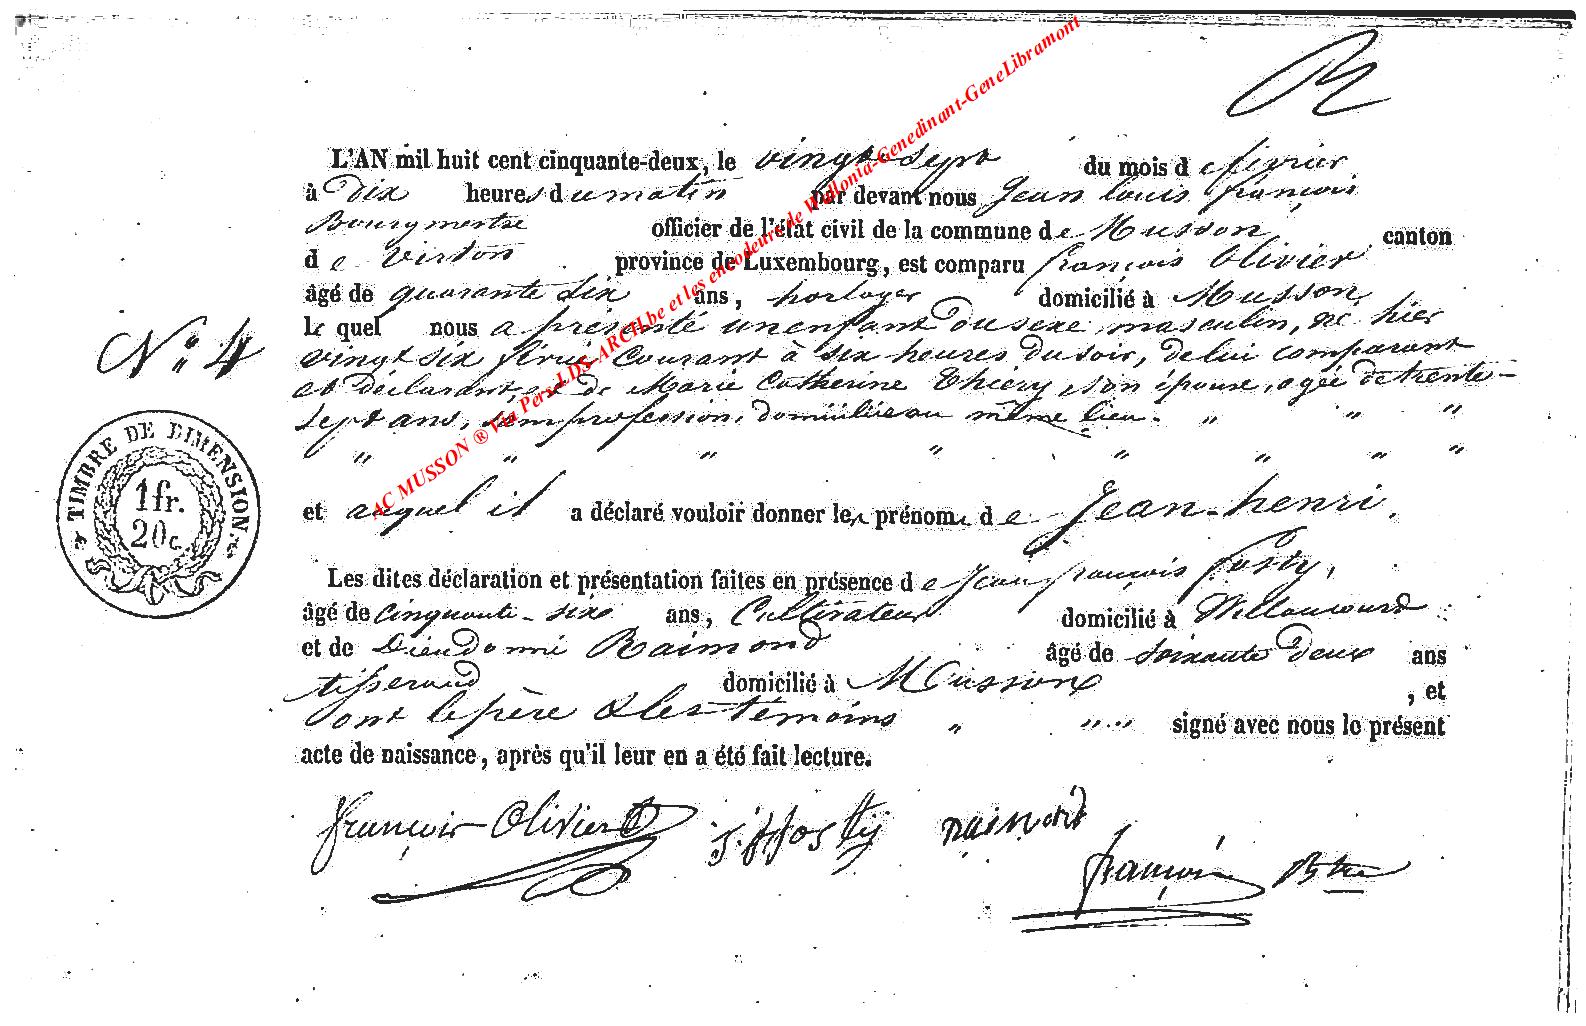 L'AN mil huit cent cinquante-deux, le vingt-sept du mois de février
à Dix heures du matin par devant nous Jean Louis françois
Bourgmestre officier de l'état civil de la commune de Musson canton
de Virton province de Luxembourg, est comparu françois Olivier
âgé de quarante six ans, horloger domicilié à Musson,
le quel nous a présenté un enfant du sexe masculin, né hier
N° 4
vingt six courant à six heures du soir, de lui comparant
et déclarant, et de Marie Catherine Thiéry son épouse, agée de trente-
sept ans, sans profession, domiciliée au même lieu. " " "
" " " " " " " "
TIMBRE DE DIMENSION
1 fr.
20 c.
et auquel il a déclaré vouloir donner les prénom de Jean-henri.
Les dites déclaration et présentation faites en présence de Jean françois fosty,
âgé de cinquante-six ans, Cultivateur domicilié à Willancourt
et de Dieudonné Raimond âgé de soixante deux ans
tisserand domicilié à Musson, et
ont le père & les témoins " " " signé avec nous le présent
acte de naissance, après qu'il leur en a été fait lecture.
françois Olivier j.f fosty raimond
françois Btre
AC MUSSON ® Via Pers-LDS-ARCH.be et les encodeurs de Wallonia-Genedinant-GeneLibramont